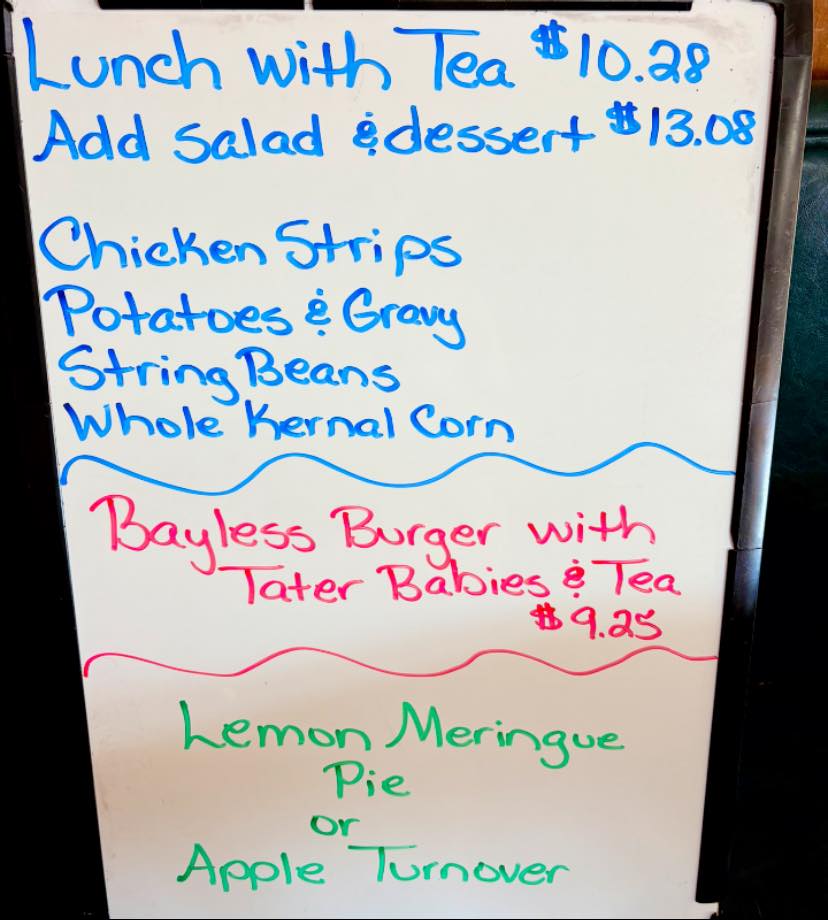 Lunch with Tea $10.28
Add salad & dessert $13.08
Chicken Strips
Potatoes & Gravy
String Beans
Whole Kernal Corn
Bayless Burger with
Tater Babies & Tea
$9.25
Lemon Meringue
Pie
or
Apple Turnover